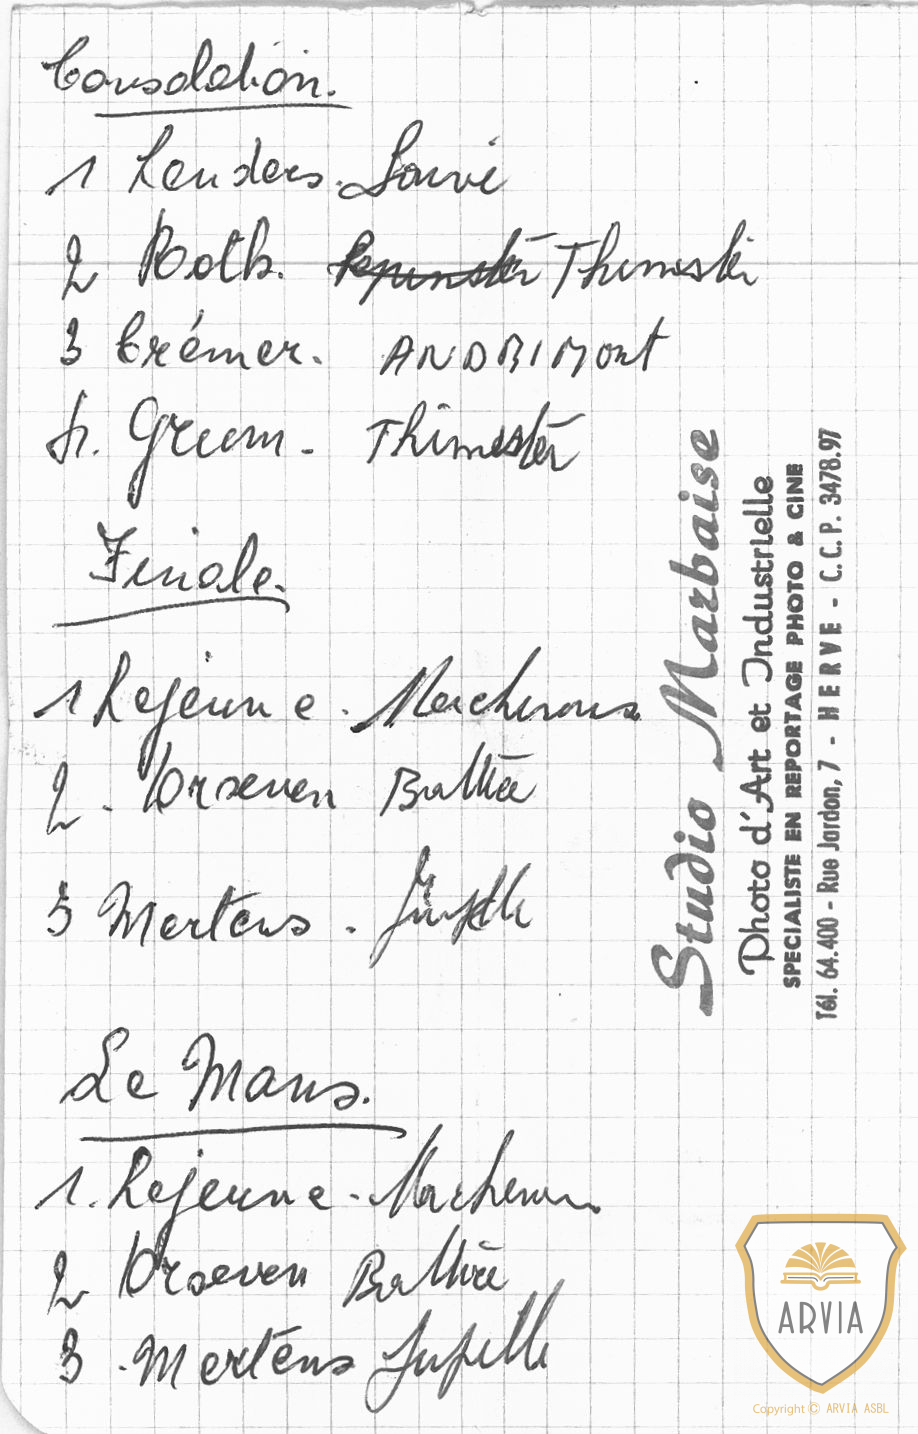 Consolation.
1 Lenders. Soiron
2 Roth. Pepinster Thimister
3 Crémer. ANDRIMont
4. Green - Thimister
Finale.
1 Lejeune . Macherous
2 . Orseven Battice
3 Mertens . Jupille
Le Mans.
1. Lejeune - Macherous
2 Orseven Battice
3 . Mertens Jupille
Studio Marbaise
Photo d'Art et Industrielle
SPECIALISTE EN REPORTAGE PHOTO & CINE
Tél. 64.400 - Rue Jardon, 7 - HERVE - C.C.P. 3478.97
ARVIA
Copyright © ARVIA ASBL